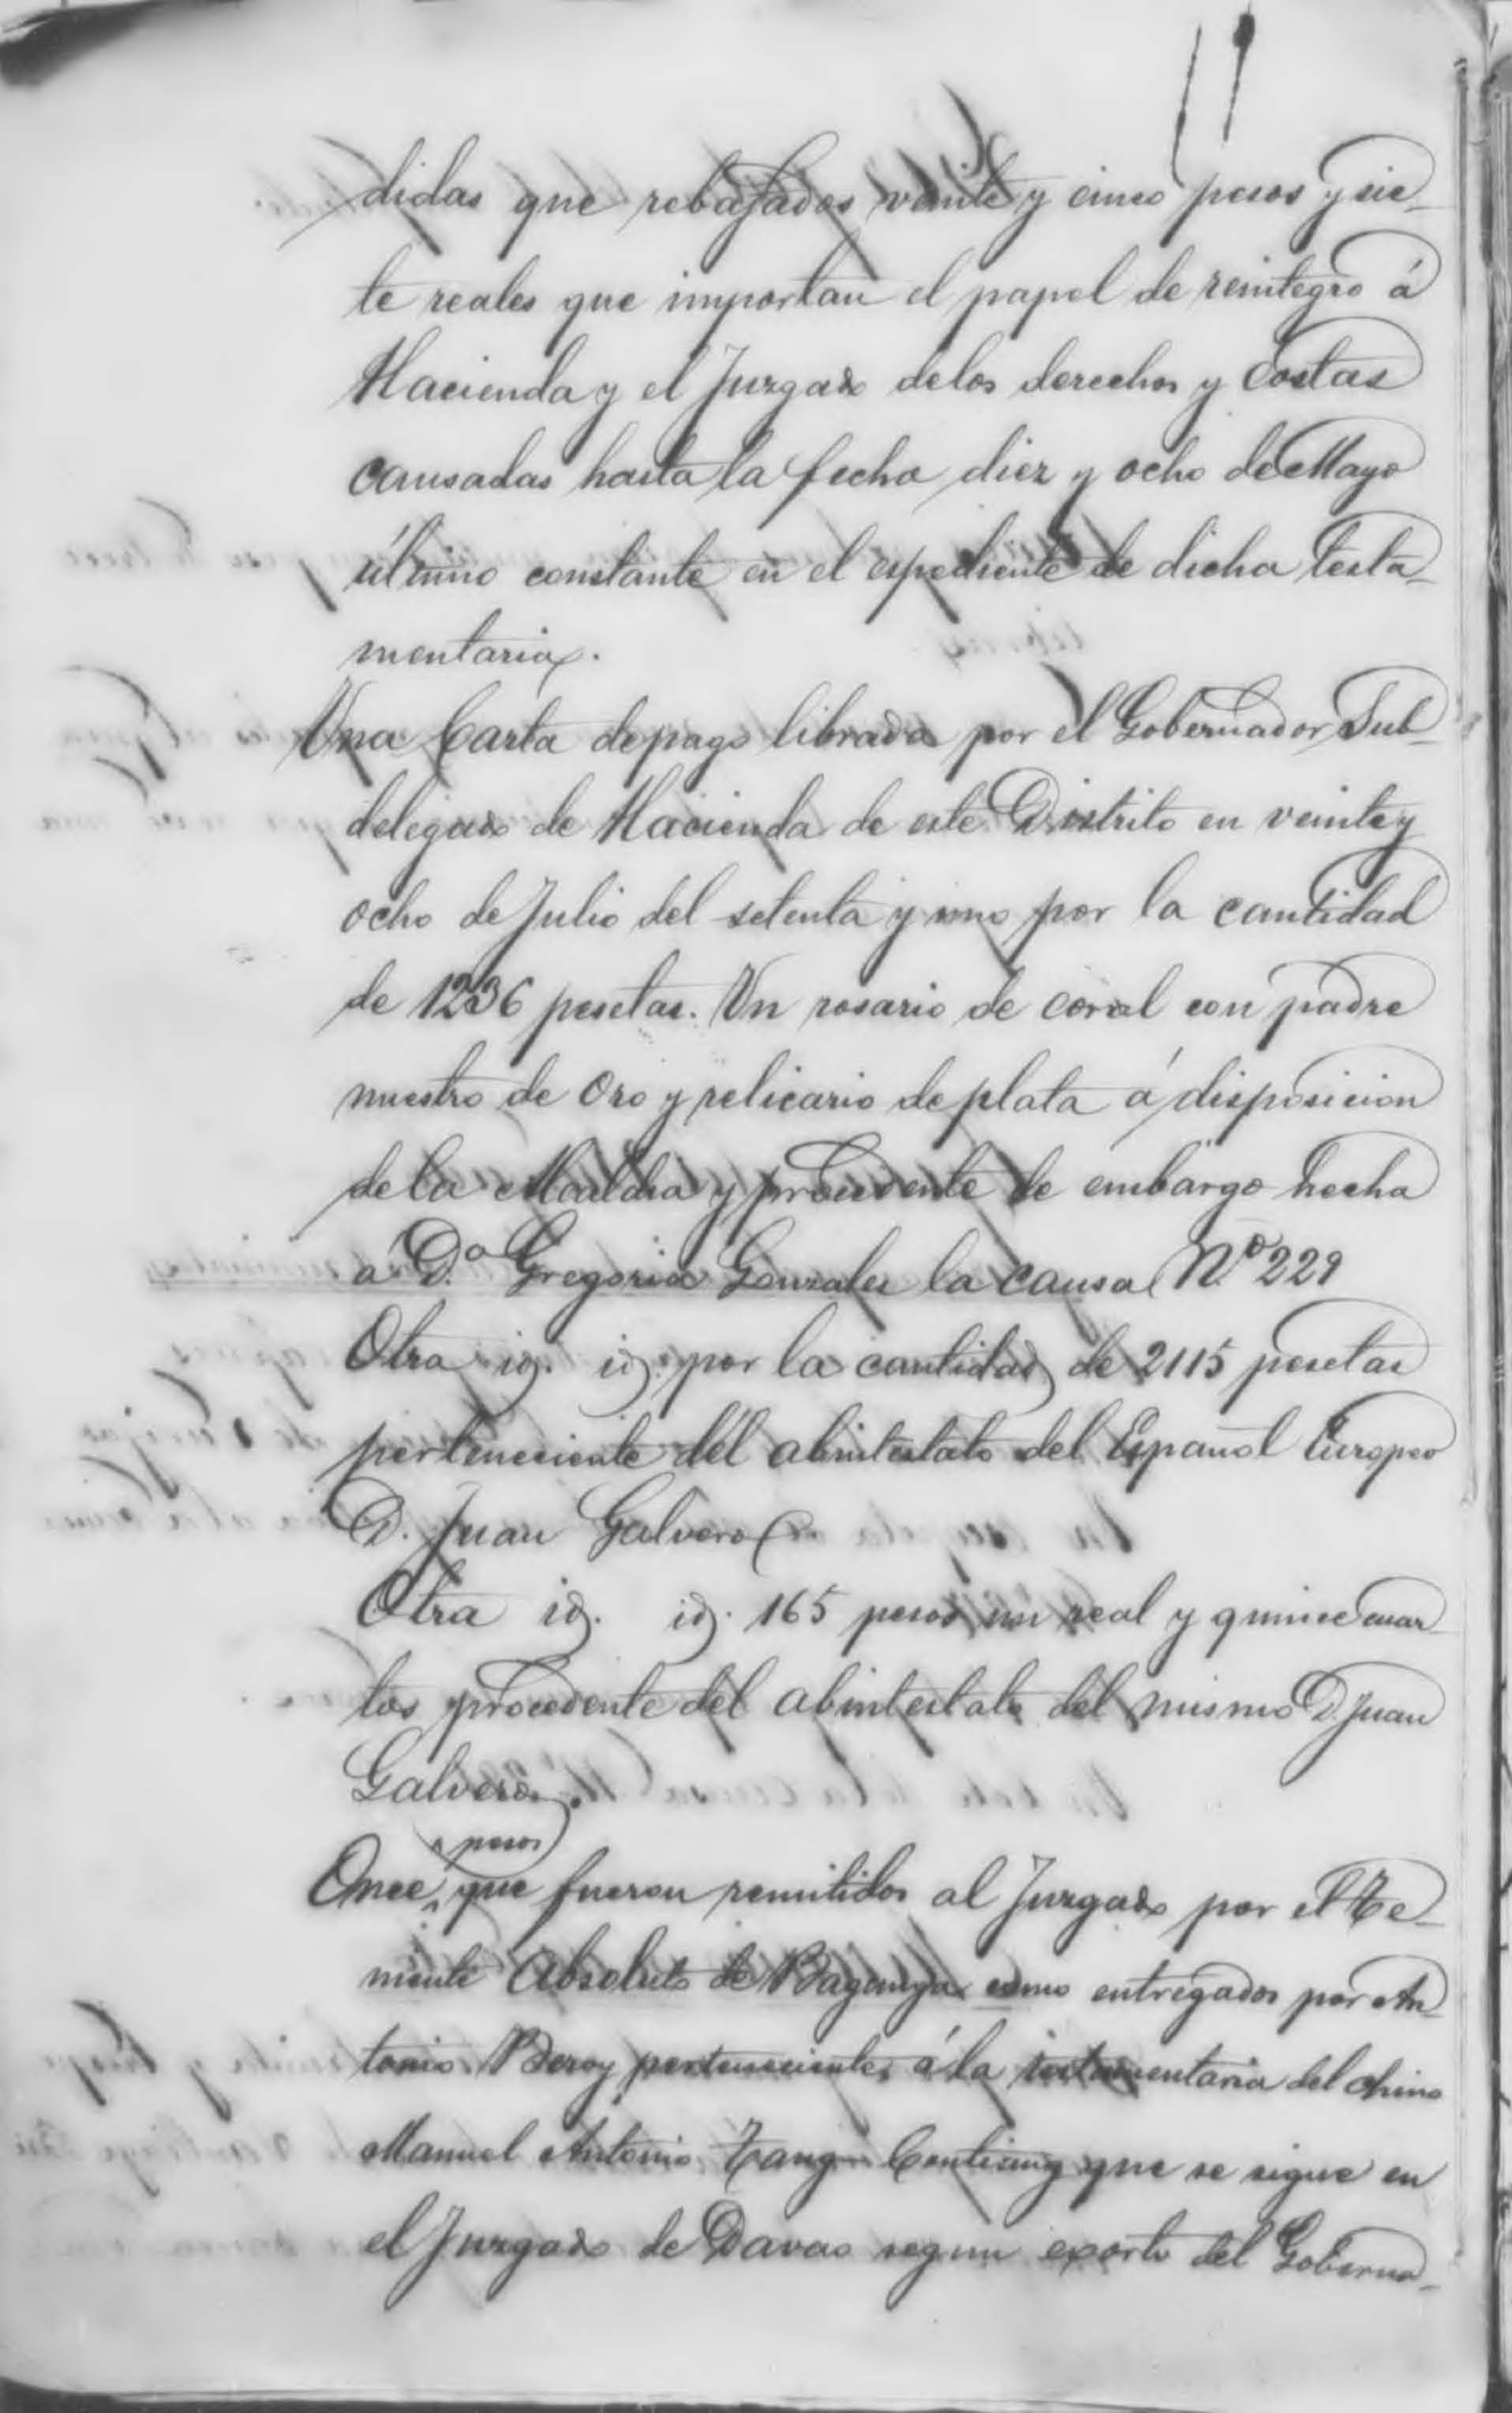 didas que rebajados veinte y cinco pesos y sie-
te reales que importan el papel de reintegro á
Hacienda y el Juzgado delos derechos y Costas
causadas hasta la fecha diez y ocho de Mayo
último constante en el espediente de dicha testa-
mentaria.
Una Carta de pago librada por el Gobernador Sub-
delegado de Hacienda de este Distrito en veinte y
ocho de Julio del setenta y uno por la cantidad
de 1236 pesetas. Un rosario de coral con padre
nuestro de Oro y relicario de plata á disposicion
de la Alcaldia y procedente de embargo hecha
á D.a Gregoria Gonzales la causa No 229
Otra id. id. por la cantidad de 2115 pesetas
perteneciente del abintestato del Español Europeo
D. Juan Galvero
Otra id. id. 165 pesos un real y quince cuar-
tos procedente del abintestato del mismo D. Juan
Galvero.
pesos
Once que fueron remitidos al Juzgado por el Te-
niente Absoluto de Baganga como entregados por An-
tonio Beroy pertenecientes á la testamentaria del chino
Manuel Antonio Tang que se sigue en
el Juzgado de Davao segun exorto del Goberna-